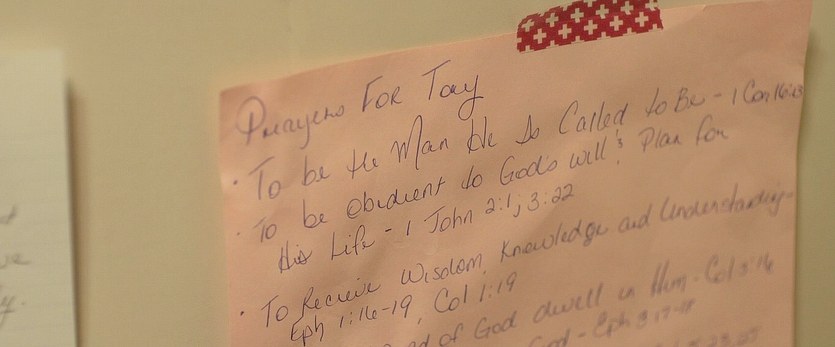 Prayers For Tay
• To be the Man He Is Called to Be - 1 Cor 16:13
• To be obedient to God's will & Plan for
His Life - 1 John 2:1; 3:22
• To Receive Wisdom, Knowledge and Understanding -
Eph 1:16-19, Col 1:19
of God dwell in Him - Col 3:16
God - Eph 3:17-18